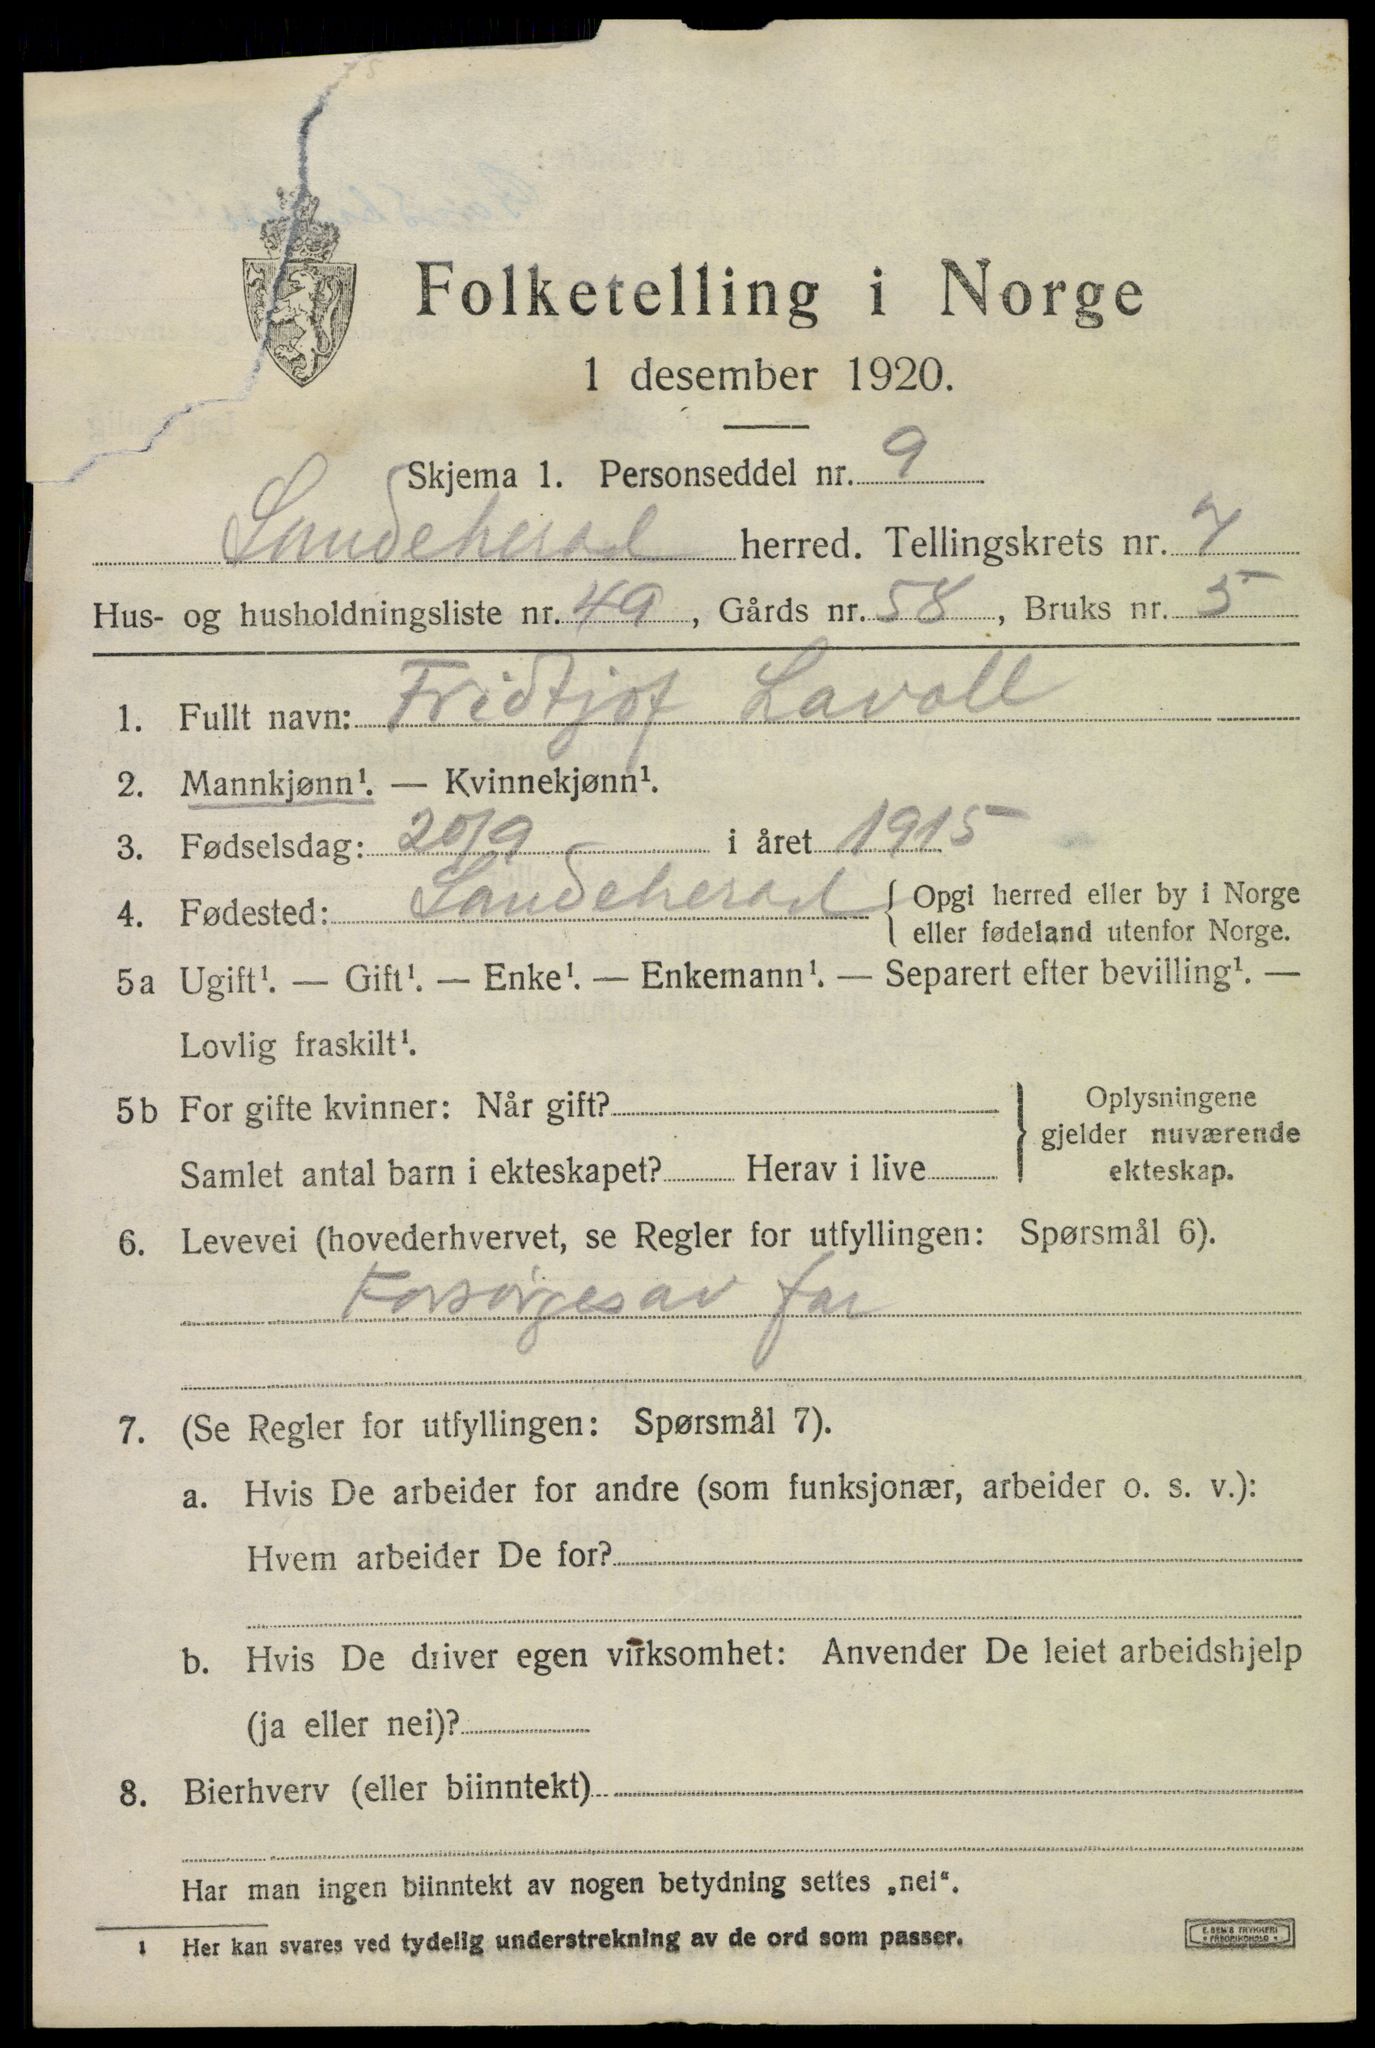 Folketelling i Norge
1 desember 1920.
Skjema 1. Personseddel nr. 9
Sandeherad herred. Tellingskrets nr. 7
Hus- og husholdningsliste nr. 49, Gårds nr. 58, Bruks nr. 5
1. Fullt navn: Fridtjof Lavoll
2. Mannkjønn¹. — Kvinnekjønn¹.
3. Fødselsdag: 20/9 i året 1915
4. Fødested: Sandeherad { Opgi herred eller by i Norge
eller fødeland utenfor Norge.
5a Ugift¹. — Gift¹. — Enke¹. — Enkemann¹. — Separert efter bevilling¹. —
Lovlig fraskilt¹.
5b For gifte kvinner: Når gift?
Samlet antal barn i ekteskapet? Herav i live
} Oplysningene
gjelder nuværende
ekteskap.
6. Levevei (hovederhvervet, se Regler for utfyllingen: Spørsmål 6).
Forsørges av far
7. (Se Regler for utfyllingen: Spørsmål 7).
a. Hvis De arbeider for andre (som funksjonær, arbeider o. s. v.):
Hvem arbeider De for?
b. Hvis De driver egen virksomhet: Anvender De leiet arbeidshjelp
(ja eller nei)?
8. Bierhverv (eller biinntekt)
Har man ingen biinntekt av nogen betydning settes „nei“.
1 Her kan svares ved tydelig understrekning av de ord som passer.